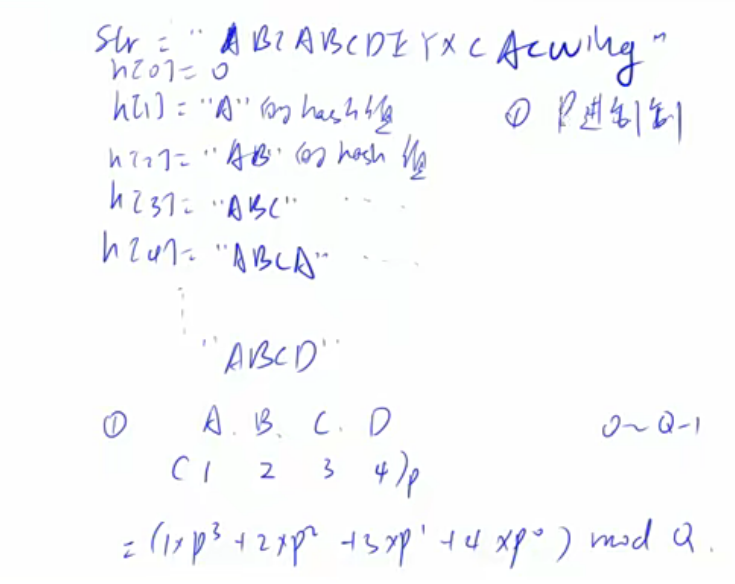 Str = "ABCABCDEYXCAcwing"
h[0] = 0
h[1] = "A" 的 hash 值
① P进制制
h[2] = "AB" 的 hash 值
h[3] = "ABC" ......
h[4] = "ABCA" ......
"ABCD"
① A. B. C. D
0~Q-1
(1 2 3 4)p
= (1×p³ + 2×p² + 3×p¹ + 4×p⁰) mod Q.